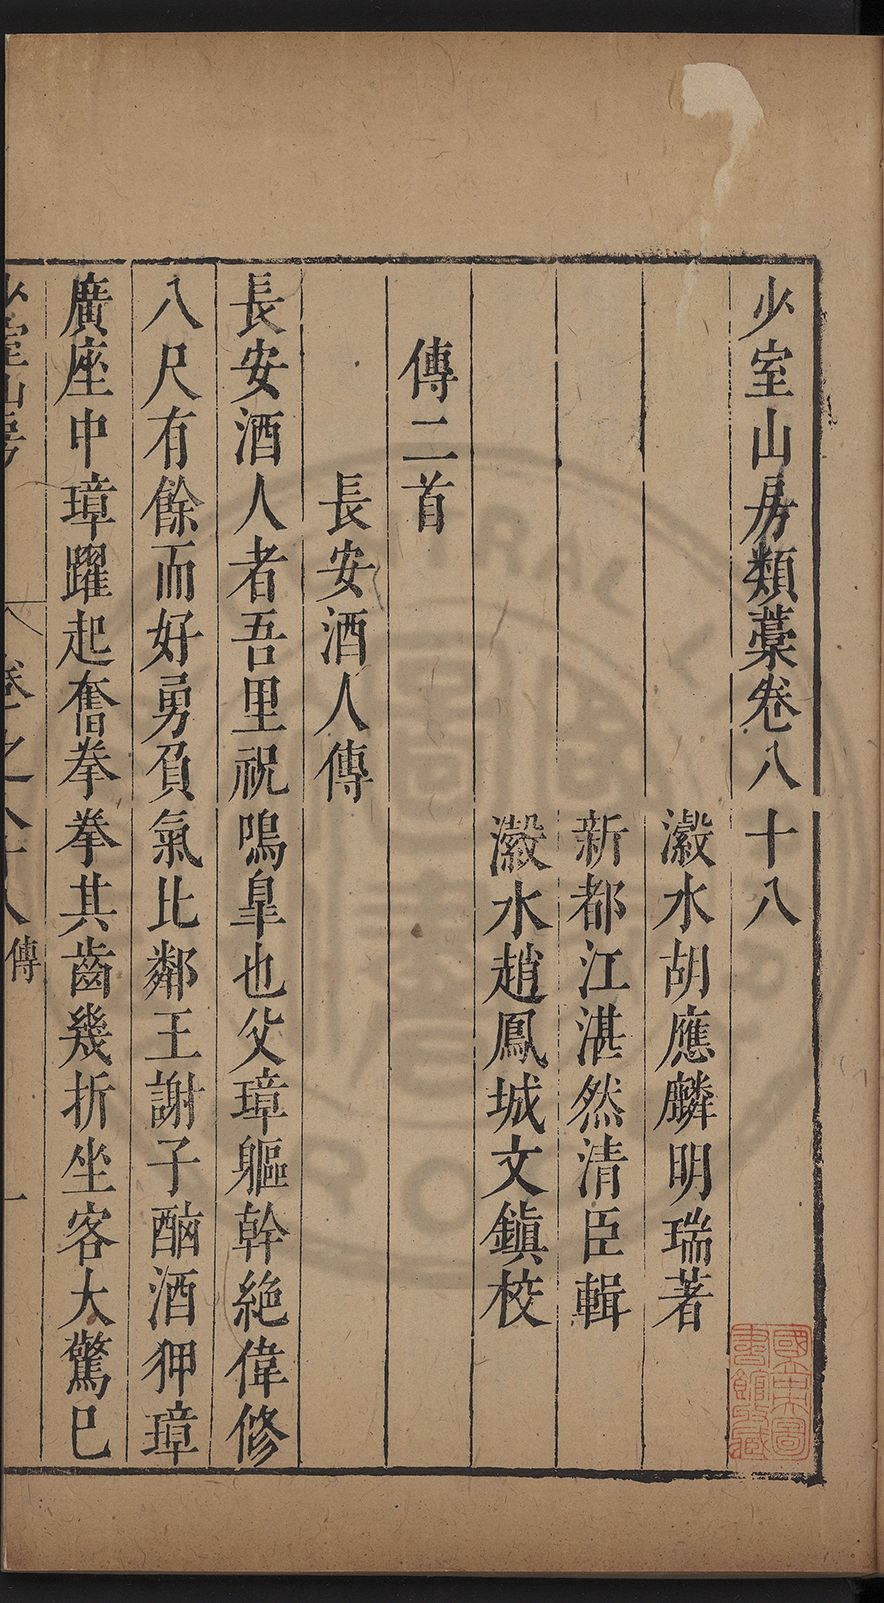 少室山房類藁卷八十八
瀔水胡應麟明瑞著
新都江湛然清臣輯
瀔水趙鳳城文鎮校
傳二首
長安酒人傳
長安酒人者吾里祝鳴皐也父璋軀幹絶偉修
八尺有餘而好勇負氣比鄰王謝子酗酒狎璋
廣座中璋躍起奮拳拳其齒幾折坐客大驚已
少室山房
卷之八十八
傳
一
國立中央圖書館收藏